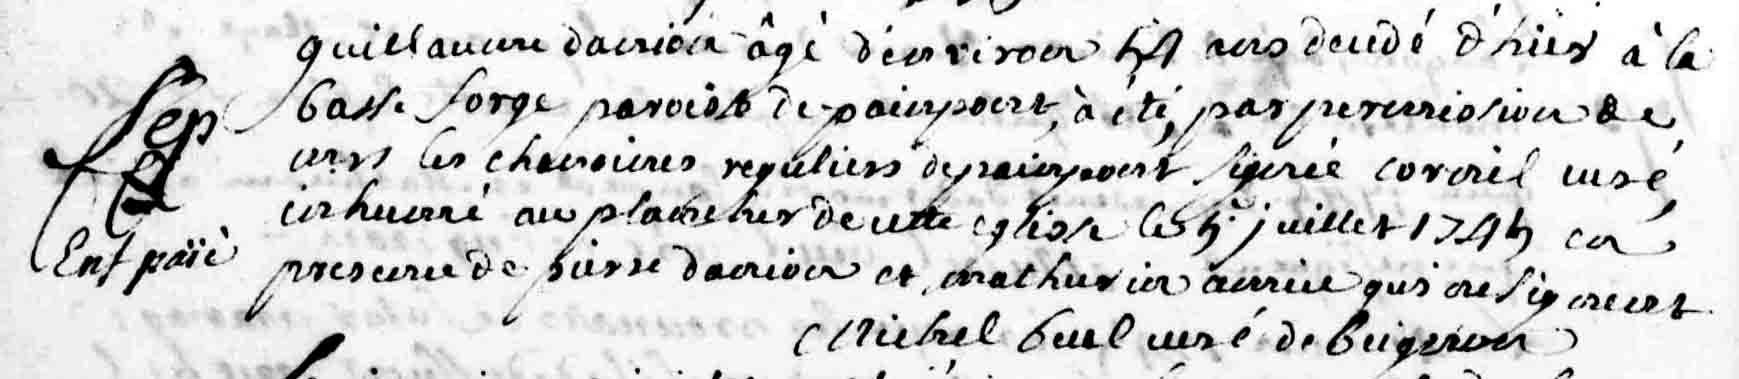 guillaume damion âgé d'environ 54 ans decedé d'hier à la
Sep basse forge paroisse de painpont, à été, par permission de
mrs les chanoines reguliers de painpont signée corvril curé,
inhumé au plancher de cette eglise le 5e juillet 1745 en
Enf païé presence de pierre damion et mathurin amice qui ne signent
Michel buel curé de beignon